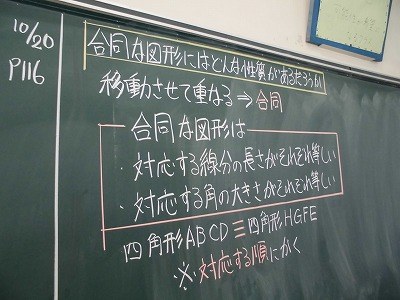 10/20
P116
合同な図形にはどんな性質があるだろうか
移動させて重ねる⇒合同
合同な図形は
・対応する線分の長さがそれぞれ等しい
・対応する角の大きさがそれぞれ等しい
四角形ABCD≡四角形HGFE
※対応する順にかく